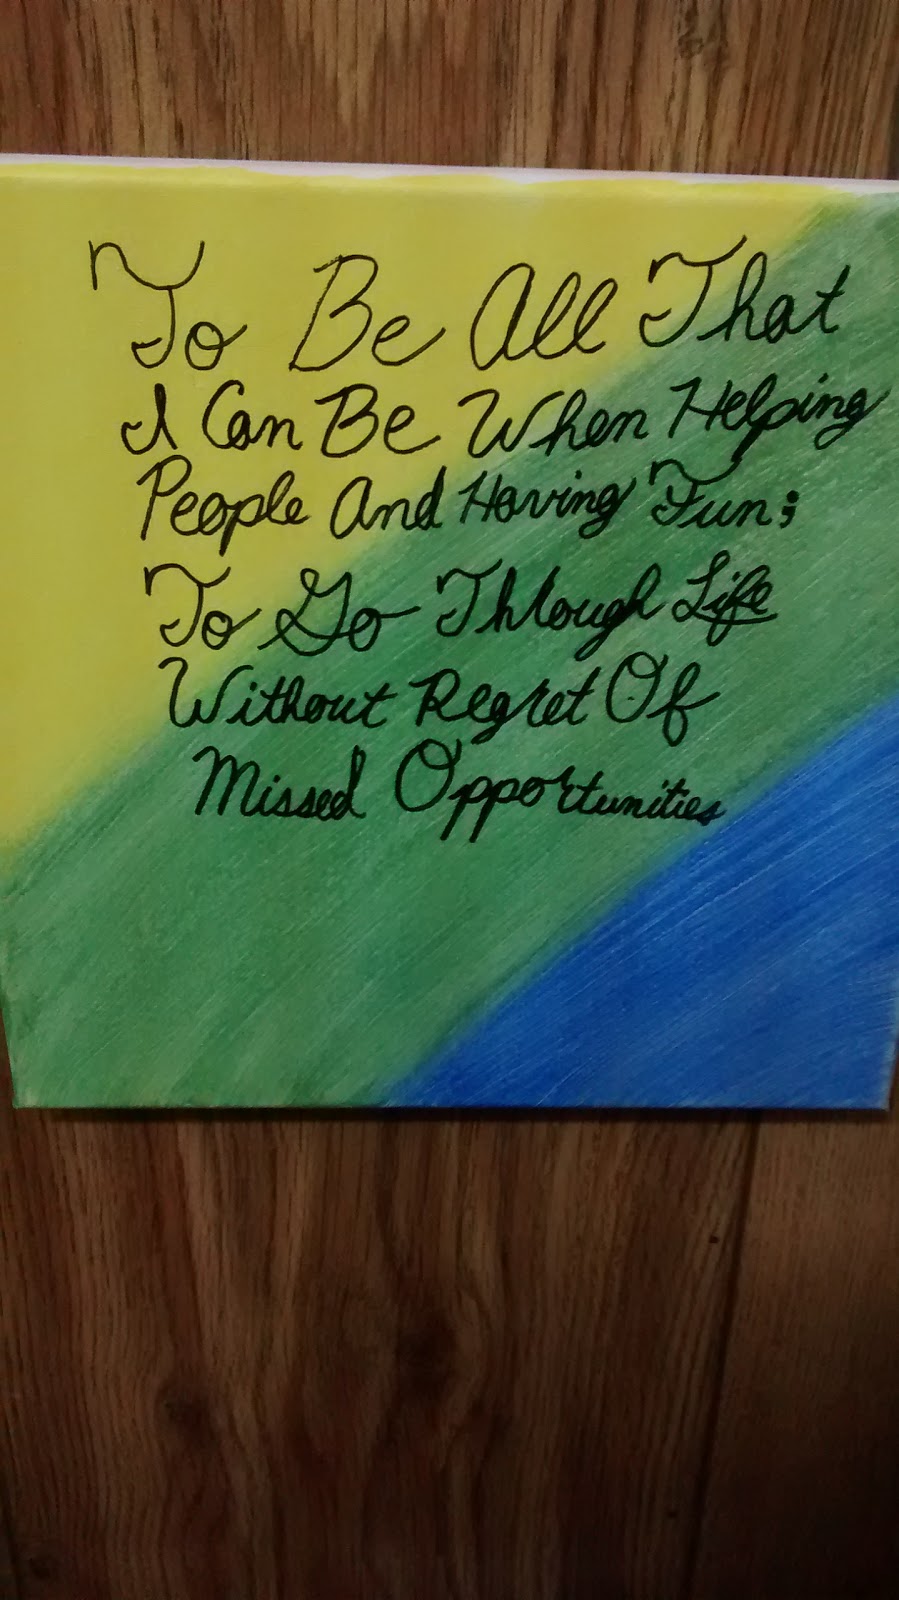 To Be All That
I Can Be When Helping
People And Having Fun;
To Go Through Life
Without Regret Of
Missed Opportunities